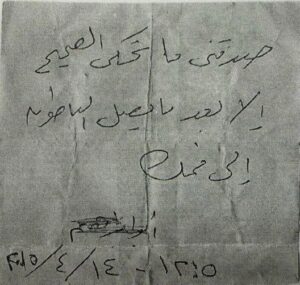 صدقني ما تحكي الصحيح
إلا بعد ما يصل الباطون
إلى فمك
٢٠١٥/٤/١٤ - ١٢:٥